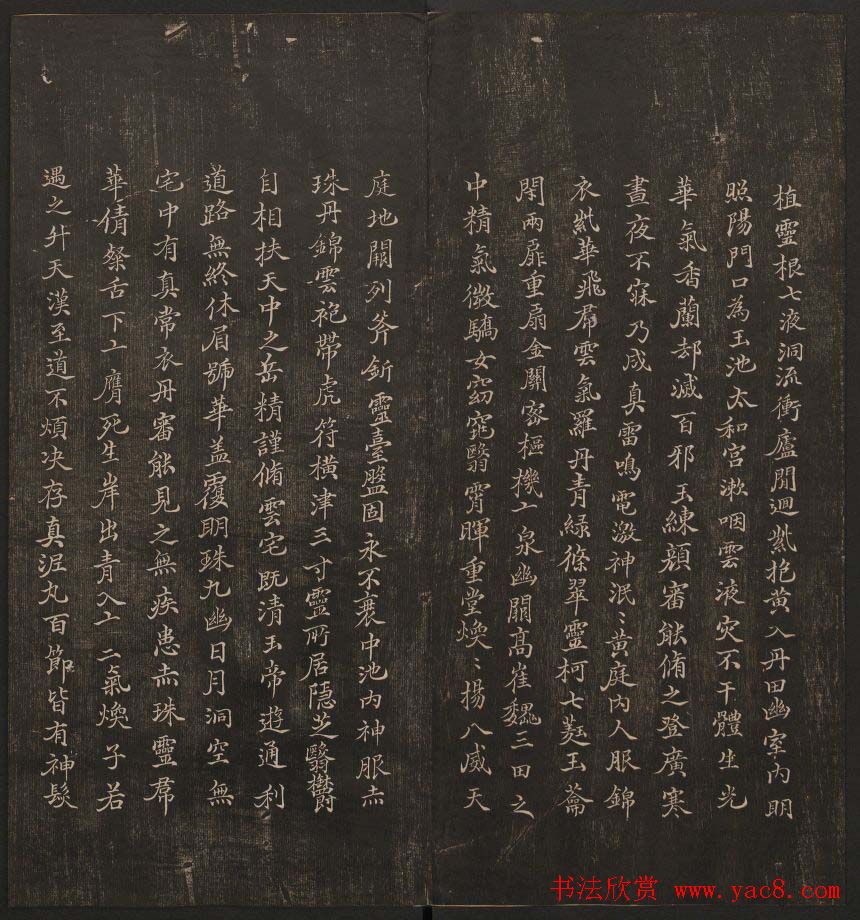 植靈根七液洞流衝廬間迴紫抱黃入丹田幽室內明
照陽門口為玉池太和宮漱咽雲液灾不干體生光
華氣香蘭却滅百邪玉練顏審能脩之登廣寒
晝夜不寐乃成真雷鳴電激神泯〻黃庭內人服錦
衣紫華飛帬雲氣羅丹青綠條翠靈柯七蕤玉蘥
閇兩扉重扇金關密樞機丄泉幽關高崔巍三田之
中精氣微驕女窈窕翳霄暉重堂煥〻揚八威天
庭地關列斧釿靈臺盤固永不衰中池內神服赤
珠丹錦雲袍帶虎符橫津三寸靈所居隱芝翳欝
自相扶天中之岳精謹脩雲宅既清玉帝遊通利
道路無終休眉號華盖覆明珠九幽日月洞空無
宅中有真常衣丹審能見之無疾患赤珠靈帬
華倩粲舌下玄膺死生岸出青入玄二氣煥子若
遇之升天漢至道不煩决存真泥丸百節皆有神髮
书法欣赏 www.yac8.com